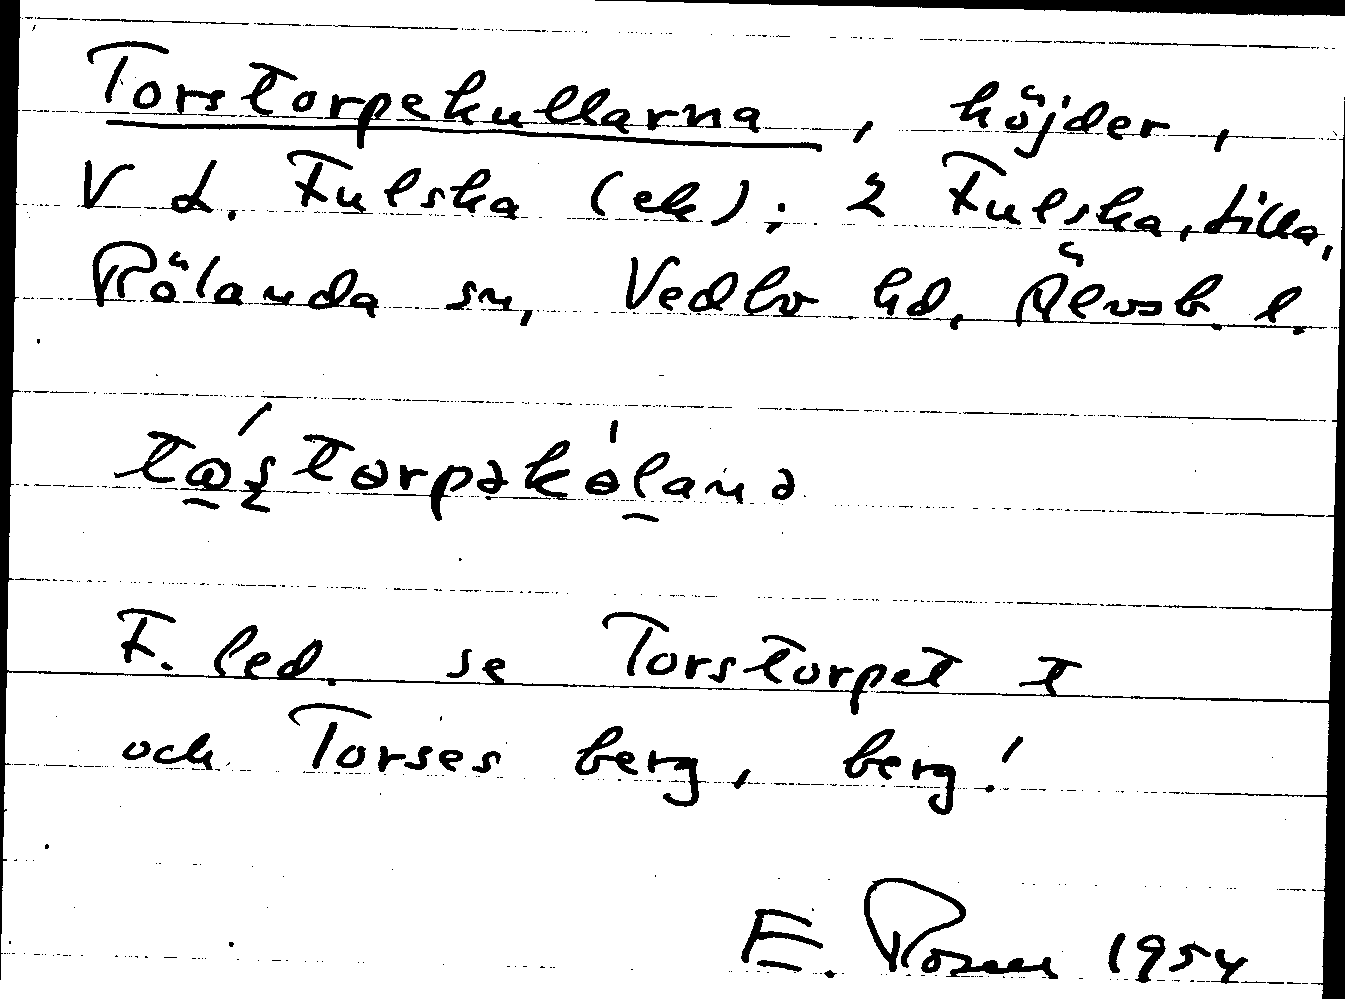 Torstorpekullarna, höjder,
V L. Fulska (ek); 2 Fulska, Lilla,
Rölanda sn, Vedbo hd, Älvsb. l.
tɷ́s̨tɵrpəkɵ̍lanə
F. led. se Torstorpet t
och Torses berg, berg!
E. Rosen 1954